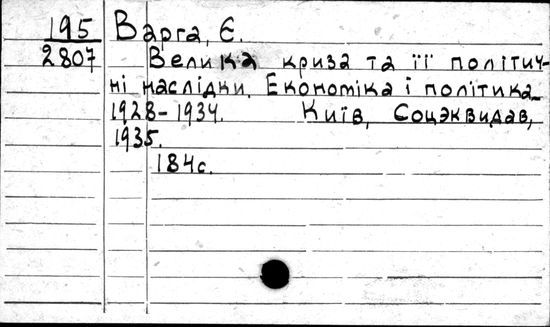 195 Варга, Є.
2807 Велика криза та її політич-
ні наслідки. Економіка і політика
1928-1934. Київ, Соцэквидав,
1935.
184с.